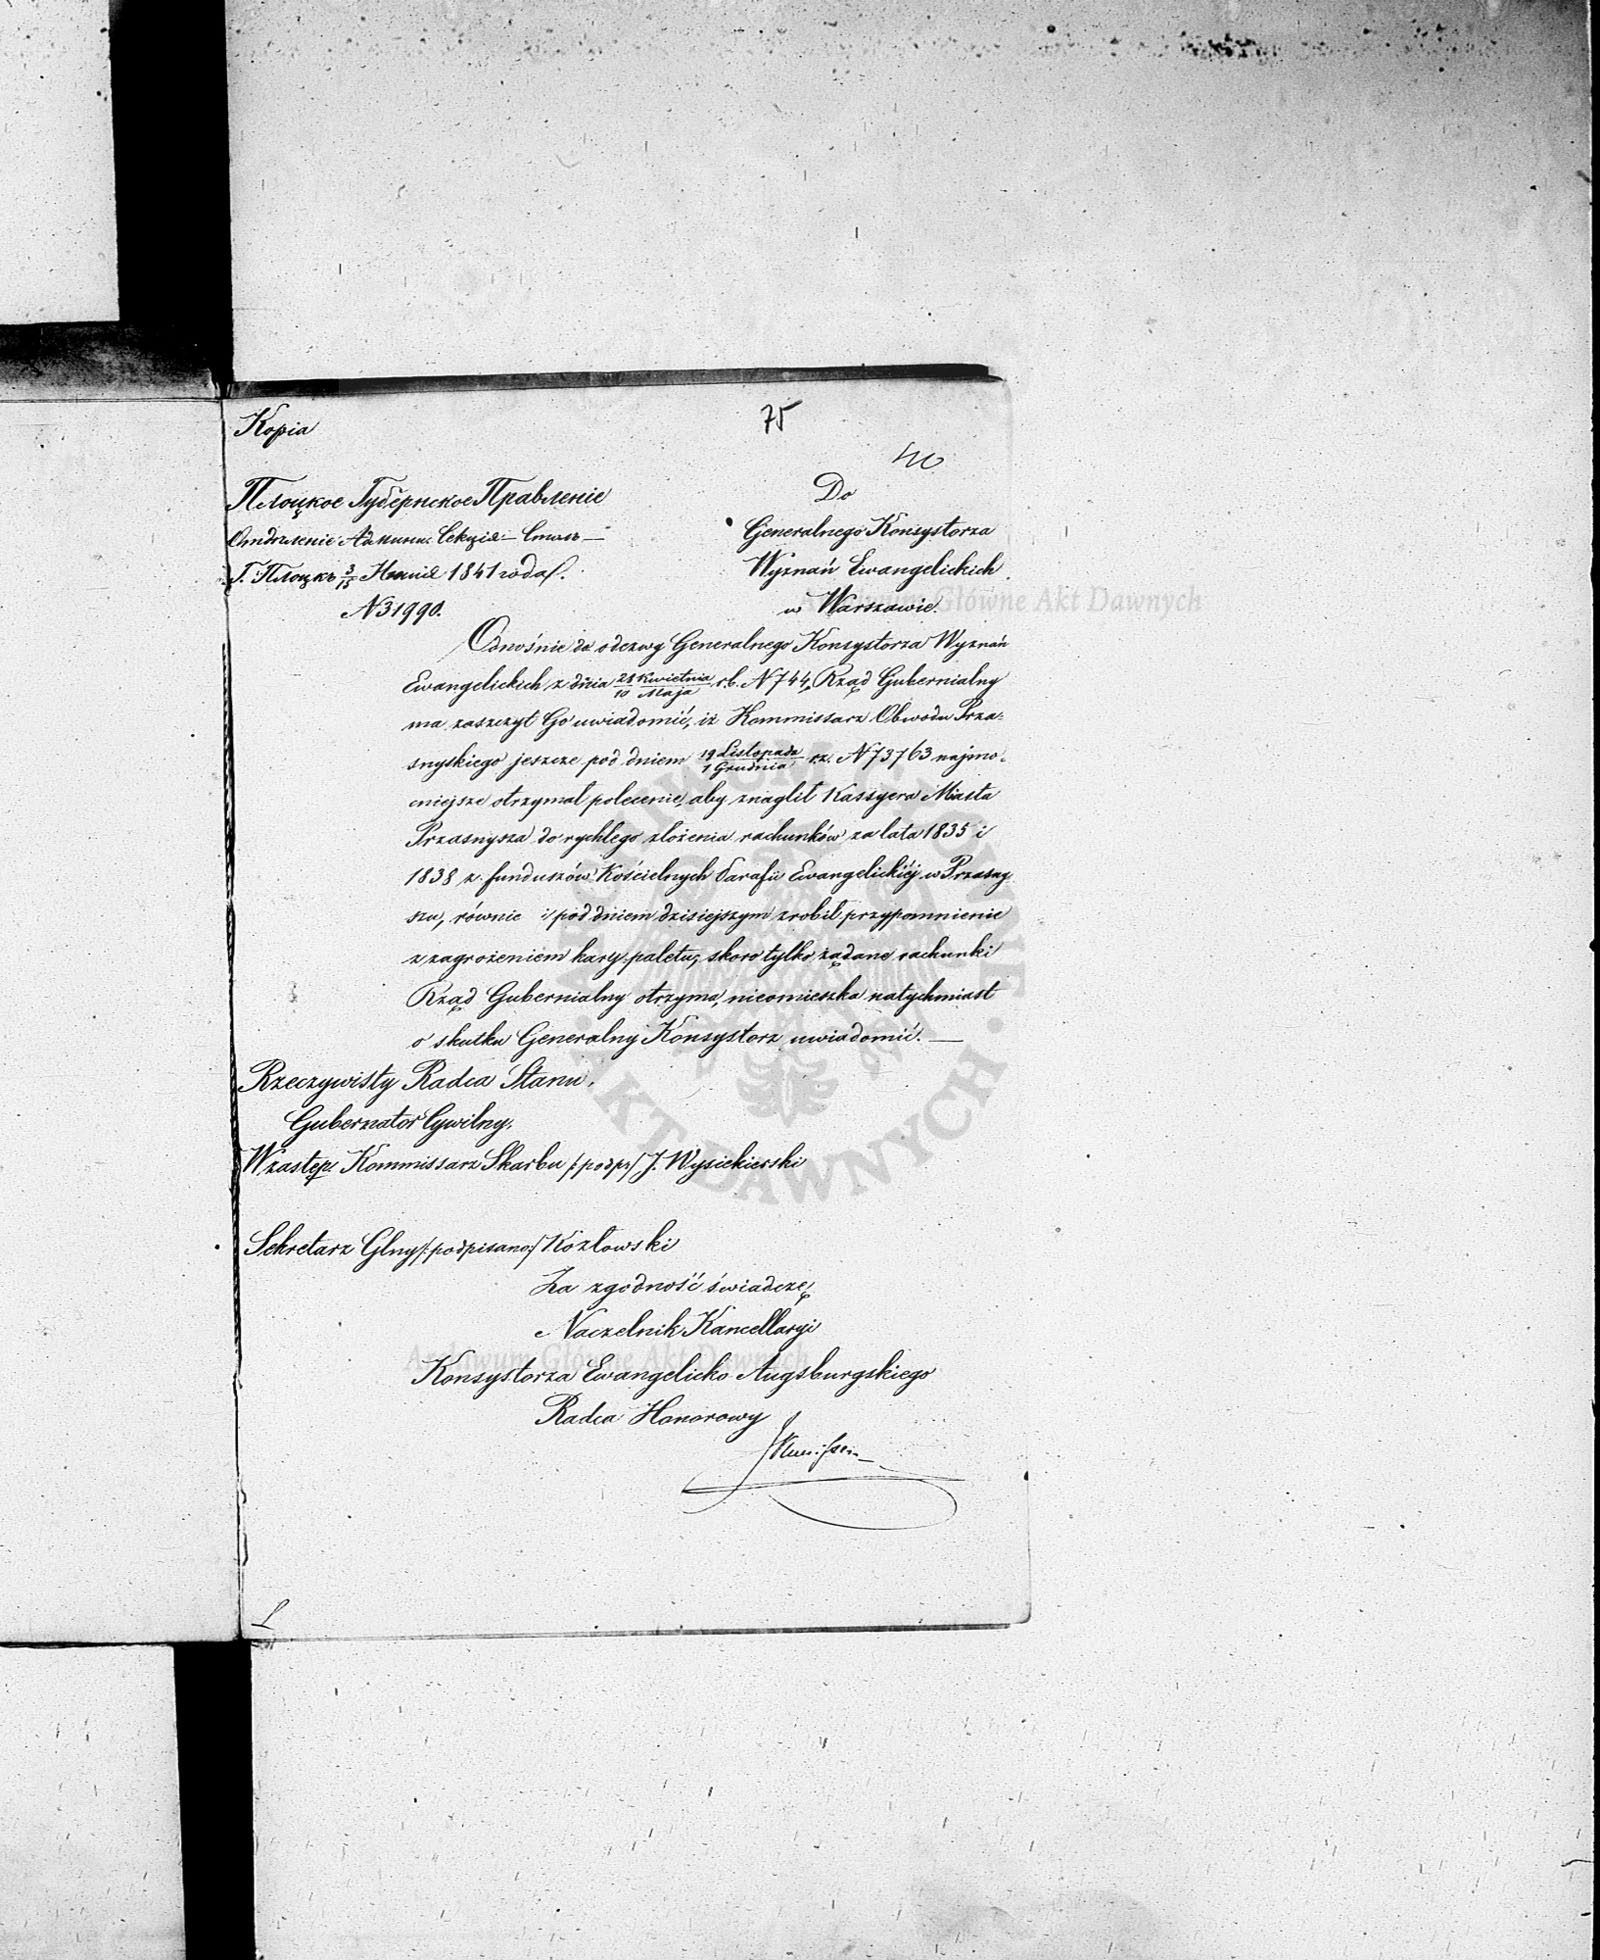 Kopia
75
40
Плоцкое Губернское Правленіе
Отдѣленіе Админ. Секція — Столъ —
Г. Плоцкъ 3/15 Іюня 1841 года.
N 31990.
Do
Generalnego Konsystorza
Wyznań Ewangelickich
w Warszawie.
Odnośnie do odezwy Generalnego Konsystorza Wyznań
Ewangelickich z dnia 28 Kwietnia / 10 Maja r.b. N 744, Rząd Gubernialny
ma zaszczyt Go uwiadomić, iż Kommissarz Obwodu Prza-
snyskiego jeszcze pod dniem 19 Listopada / 1 Grudnia r.z. N 73763 najmo-
cniejsze otrzymał polecenie, aby znaglił Kassyera Miasta
Przasnysza do rychłego złożenia rachunków za lata 1835 i
1838 z funduszów Kościelnych Parafii Ewangelickiéj w Przasny-
szu, równie i pod dniem dzisiejszym zrobił przypomnienie
z zagrożeniem kary paletu, skoro tylko żądane rachunki
Rząd Gubernialny otrzyma, nieomieszka natychmiast
o skutku Generalny Konsystorz uwiadomić. —
Rzeczywisty Radca Stanu,
Gubernator Cywilny,
W zastęp. Kommissarz Skarbu /:podp:/ J. Wysiekierski
Sekretarz Glny /:podpisano:/ Kozłowski
Za zgodność świadczę
Naczelnik Kancellaryi
Konsystorza Ewangelicko-Augsburgskiego
Radca Honorowy
Archiwum Główne Akt Dawnych
Archiwum Główne Akt Dawnych
AKT DAWNYCH